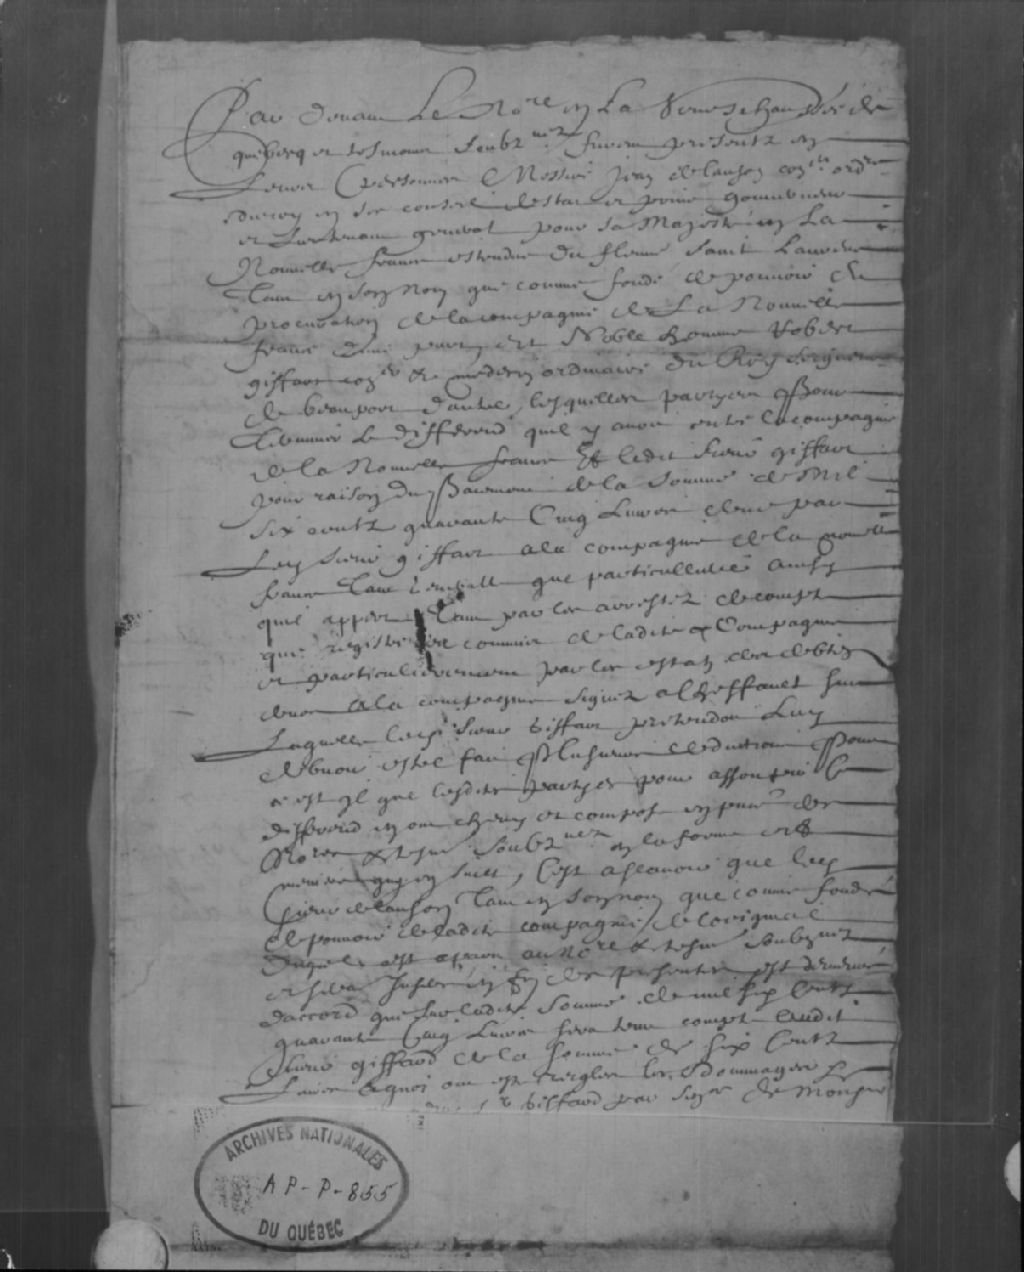 Par devant Le No.re en La Senechaussée de
quebecq et tesmoins soubz.nez furent presents en
Leurs personnes Messire Jean de lauson con.er ord.re
du roy en son conseil destat et privé gouverneur
et Lieutenant general pour sa Majesté en La
Nouvelle france estendue du fleuve saint Laurens
tant en son Nom que comme fondé de pouvoir et
procuration de la compagnie de La Nouvelle
france d'une part et Noble homme Robert
giffart con.er & medecin ordinaire du Roy seigneur
de beauport d'autre, lesquelles partyes Pour
terminer le differend quil y avoit entre la compagnie
de la Nouvelle france Et ledit sieur giffart
pour raison du payement de la somme de Mil
six centz quarante Cinq Livres deue par
Led sieur giffart a la compagnie de la nouvelle
france tant que particulliere ainsy
quil appert tant par les arrestez de compte
que registre commun de ladite Compagnie
et particulierement par les estatz des debtes
deues a la compagnie signez sur
Laquelle led. sieur Giffart pretendoit Luy
debvoir estre fait Plusieurs deductions Pour
ce est il que lesdites partyes pour assoupir le
differend en ont chevy et composé en pnce des
No.res & tesm. soubz.nez en la forme et
maniere qui en suit, C'est ascavoir que led
sieur de lauson tant en son nom que comme fondé
de pouvoir de ladite compagnie de loriginal
duquel est apparu au No.re & tesm. soubz.nez
et sera inseré en fin des presentes est demeuré
daccord que sur ladite somme de mil six Centz
quarante Cinq Livres sera tenu compte audit
sieur giffard de la somme de six Centz
Livres a quoi ont esté reiglez les dommages
giffard par de Monsieur
ARCHIVES NATIONALES
AP-P-855
DU QUÉBEC